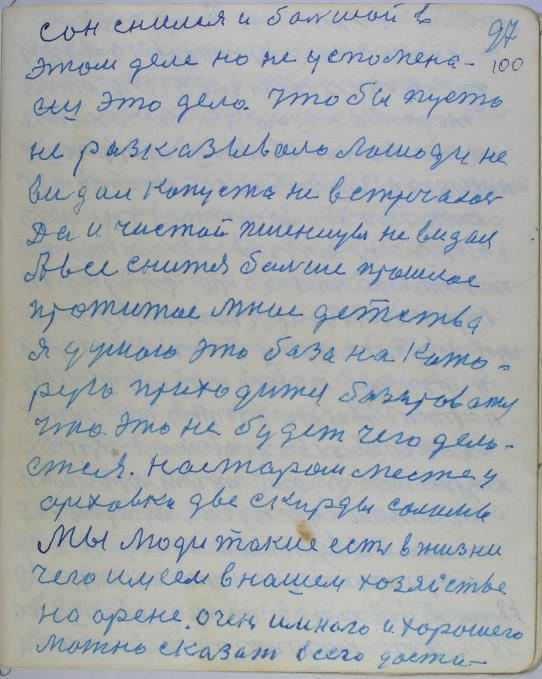 сон снился и большой в
97
этом деле но не успомена-
100
ещ это дело. Чтобы пусть
не разказывало Лошоди не
видал Капуста не встречалас
Да и чистой пшеницы не видал
А все снится больше прошлое
прожитое мное детства
я думою это база на Кото-
рую приходится базировать
что это не будет чего дело-
ется. на старом месте у
ореховки две скирды соломы
Мы люди такие есть в жизни
чего имеем в нашем хозяйстве
на орене. очен много и хорошего
можно сказат всего доста-